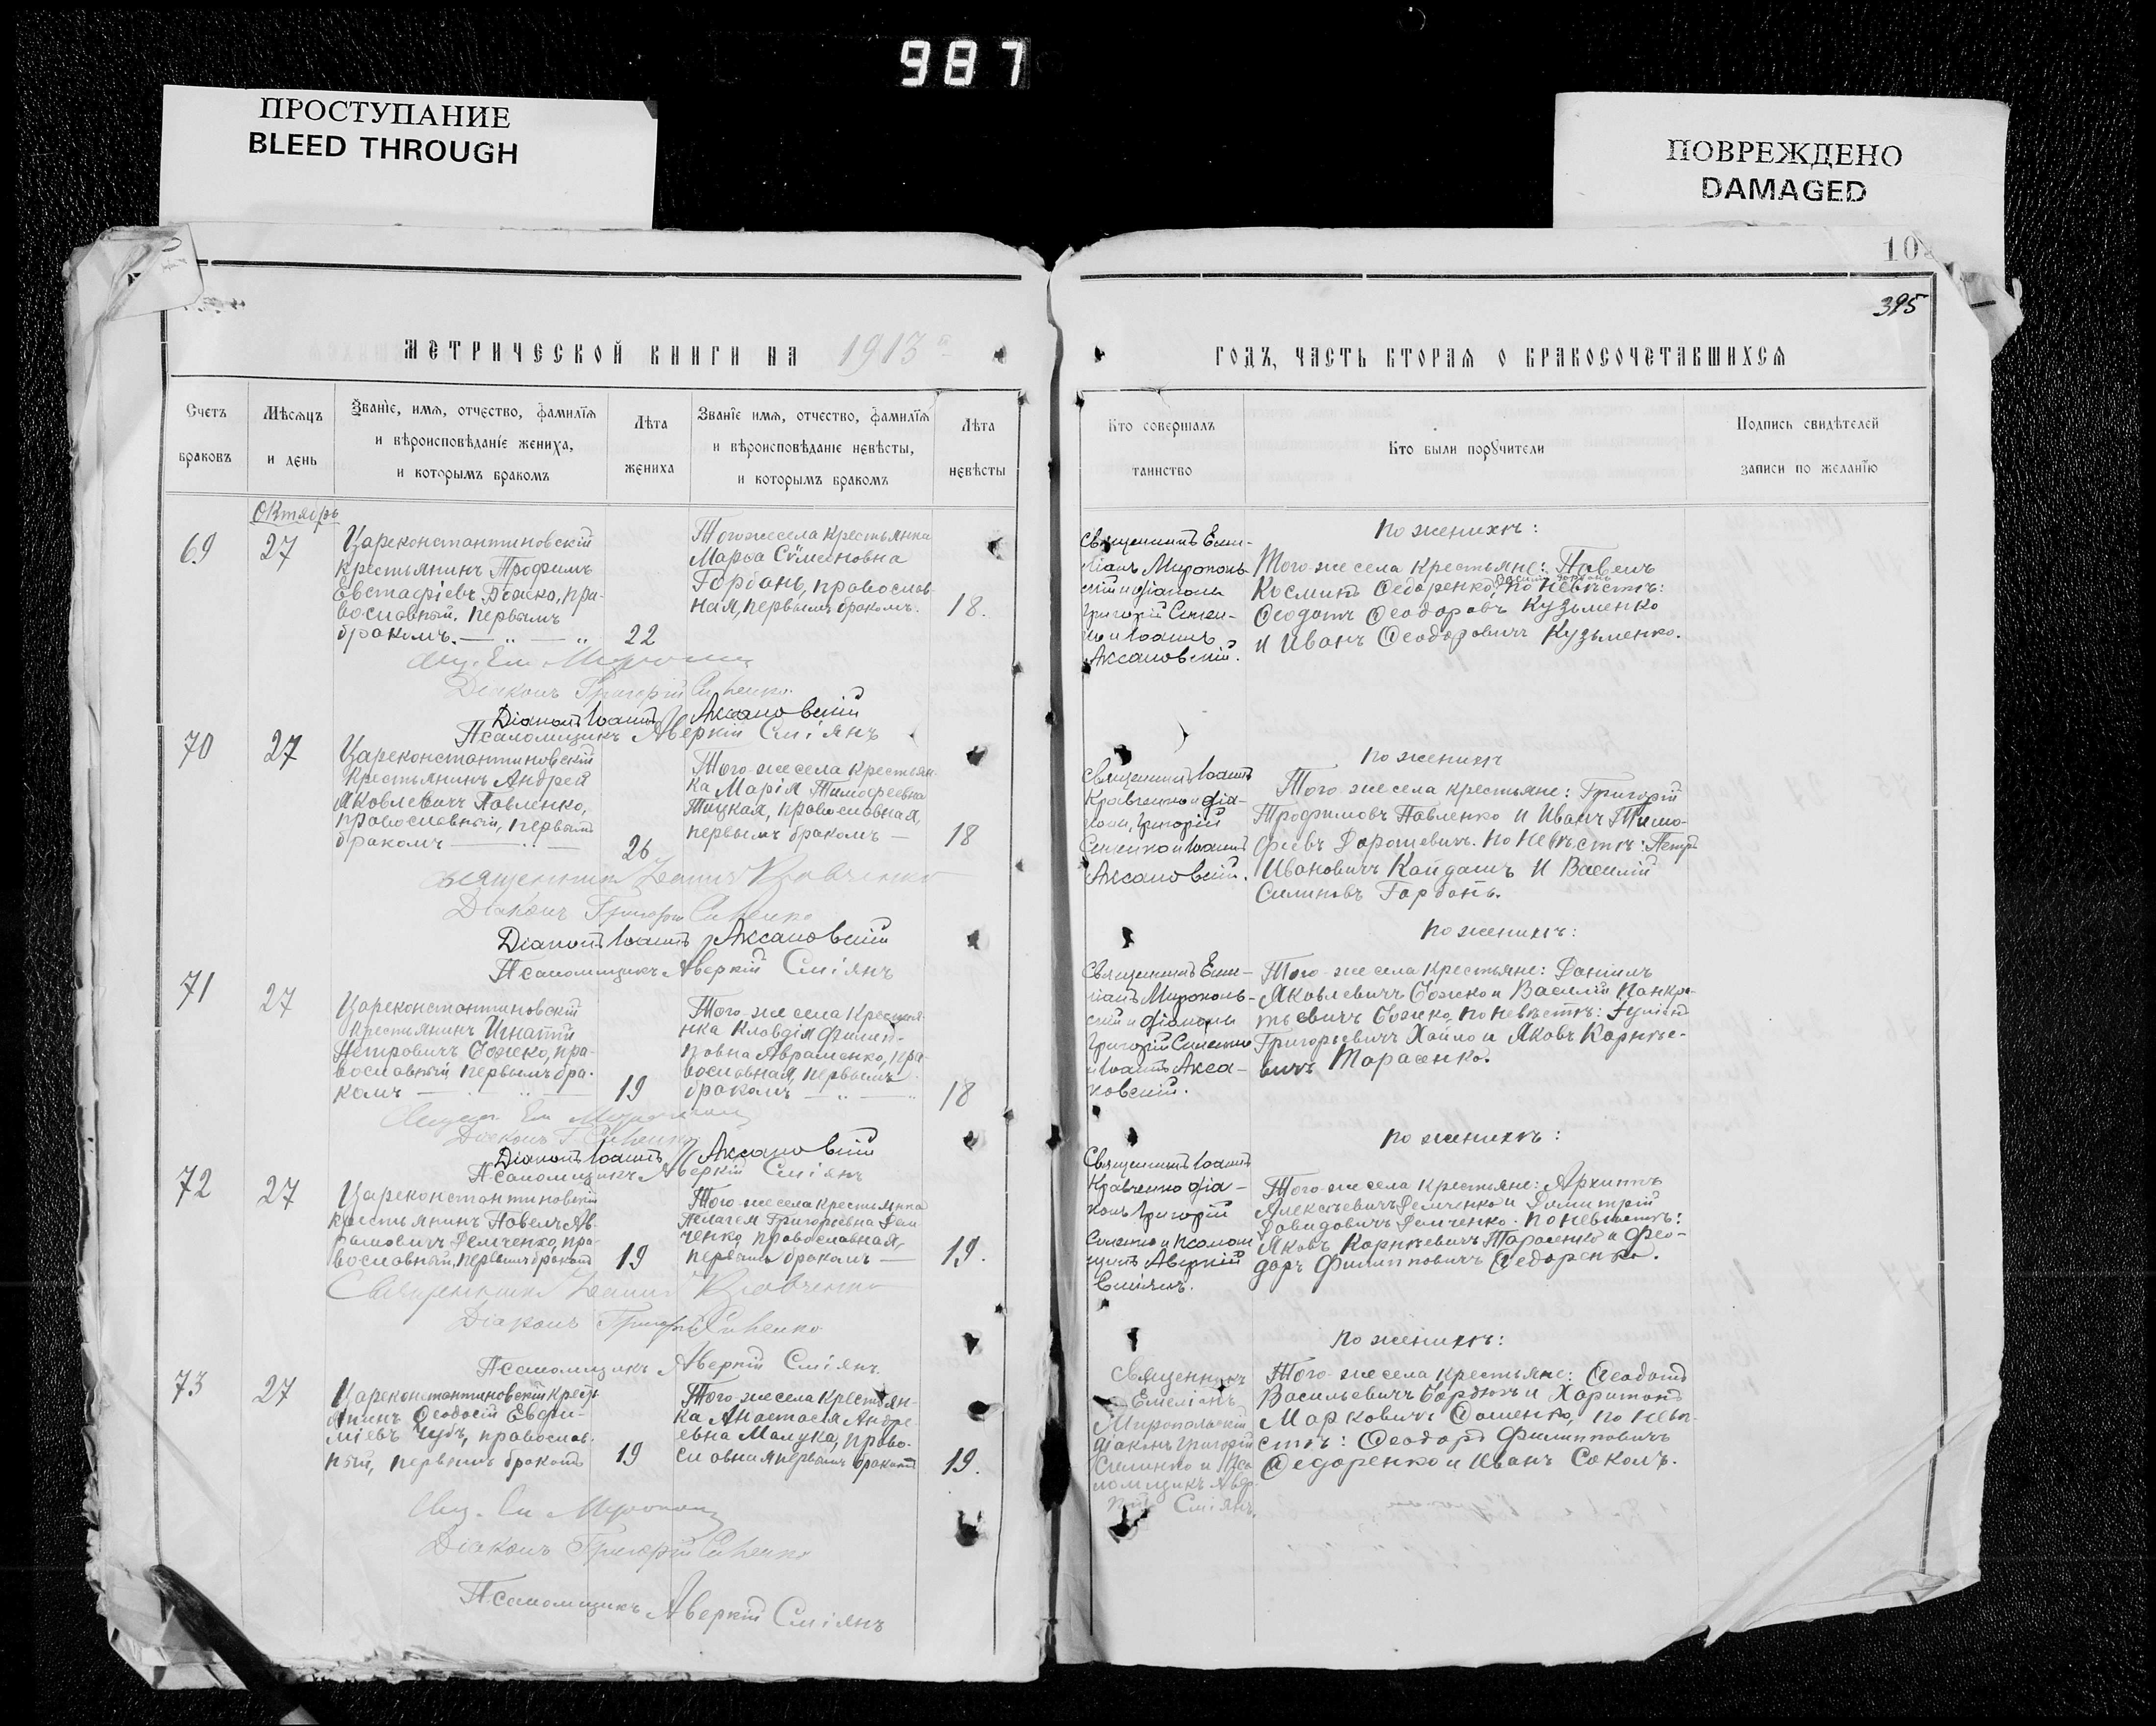 987
ПРОСТУПАНИЕ
BLEED THROUGH
ПОВРЕЖДЕНО
DAMAGED
10
395
МЕТРИЧЕСКОЙ КНИГИ НА 1913
ГОДЪ, ЧАСТЬ ВТОРАЯ О БРАКОСОЧЕТАВШИХСЯ
Счетъ
браковъ
Мѣсяцъ
и день
Званіе, имя, отчество, фамилія
и вѣроисповѣданіе жениха,
и которымъ бракомъ
Лѣта
жениха
Званіе имя, отчество, фамилія
и вѣроисповѣданіе невѣсты,
и которымъ бракомъ
Лѣта
невѣсты
Кто совершалъ
таинство
Кто были поручители
Подпись свидѣтелей
записи по желанію
Октябрь
69
27
Цареконстантиновскій
крестьянинъ Трофимъ
Евстафіевъ Божко, пра-
вославный, первымъ
бракомъ.
22
Того-же села крестьянка
Марѳа Сѵмеоновна
Горбань, православ
ная, первымъ бракомъ.
18.
Священникъ Еми-
ліанъ Мирополь
скій и діаконы
Григорій Симен-
ко и Іоаннъ
Аксаковскій.
По женихѣ:
Того-же села крестьяне: Павелъ
Косминъ Ѳедоренко, по невѣстѣ:
Ѳеодотъ Ѳеодоровъ Кузьменко
и Иванъ Ѳеодоровичъ Кузьменко.
Діаконъ Григорій
Діаконъ Іоаннъ Аксаковскій
Псаломщикъ Аверкій Сміянъ
70
27
Цареконстантиновскій
крестьянинъ Андрей
Яковлевичъ Павленко,
православный, первымъ
бракомъ
26
Того-же села крестьян
ка Марія Тимофеевна
Тицкая, православная,
первымъ бракомъ
18
Священникъ Іоаннъ
Кравченко и діа-
коны, Григорій
Сименко и Іоаннъ
Аксаковскій.
По женихѣ
Того-же села крестьяне: Григорій
Трофимовъ Павленко и Иванъ Тимо-
феевъ Дорошевичъ. По невѣстѣ: Петръ
Ивановичъ Кайдашъ и Василій
Силиновъ Горбань.
Священникъ Іоаннъ Кравченко
Діаконъ Григорій
Діаконъ Іоаннъ Аксаковскій
Псаломщикъ Аверкій Сміянъ
71
27
Цареконстантиновскій
крестьянинъ Игнатій
Петровичъ Божко, пра-
вославный первымъ бра-
комъ
19
Того-же села крестья
нка Клавдія Филип-
повна Аврашенко, пра-
вославная, первымъ
бракомъ
18
Священникъ Еми-
ліанъ Мирополь-
скій и діаконы
Григорій Сименко
и Іоаннъ Акса-
ковскій.
По женихѣ:
Того-же села крестьяне: Даніилъ
Яковлевичъ Божко и Василій Панкра-
тьевичъ Божко, по невѣстѣ:
Григорьевичъ Хайло и Яковъ Корнѣе-
вичъ Тарасенко.
Діаконъ Г.
Діаконъ Іоаннъ Аксаковскій
Псаломщикъ Аверкій Сміянъ
72
27
Цареконстантиновскій
крестьянинъ Павелъ Ав-
рамовичъ Демченко, пра-
вославный, первымъ бракомъ
19
Того-же села крестьянка
Пелагея Григорьевна Дем-
ченко, православная,
первымъ бракомъ
19.
Священникъ Іоаннъ
Кравченко діа-
конъ Григорій
Сименко и псалом
щикъ Аверкій
Сміянъ.
По женихѣ:
Того-же села крестьяне: Архиппъ
Алексѣевичъ Демченко и Димитрій
Давидовичъ Демченко. По невѣстѣ:
Яковъ Корнѣевичъ Тарасенко и Ѳео-
доръ Филипповичъ Ѳедоренко.
Священникъ Іоаннъ Кравченко
Діаконъ Григорій
Псаломщикъ Аверкій Сміянъ
73
27
Цареконстантиновскій кресть
янинъ Ѳеодосій Евфи-
міевъ Чубъ, православ-
ный, первымъ бракомъ
19
Того же села крестьян-
ка Анастасія Андре-
евна Малука, право-
славная первымъ бракомъ
19.
Священникъ
Емеліанъ
Миропольскій
діаконъ Григорій
Сименко и Пса
ломщикъ Авер-
кій Сміянъ.
По женихѣ:
Того-же села крестьяне: Ѳеодотъ
Васильевичъ Бардюгъ и Харитонъ
Марковичъ Ѳоменко, по невѣ-
стѣ: Ѳеодоръ Филипповичъ
Ѳедоренко и Иванъ Соколъ.
Діаконъ Григорій
Псаломщикъ Аверкій Сміянъ